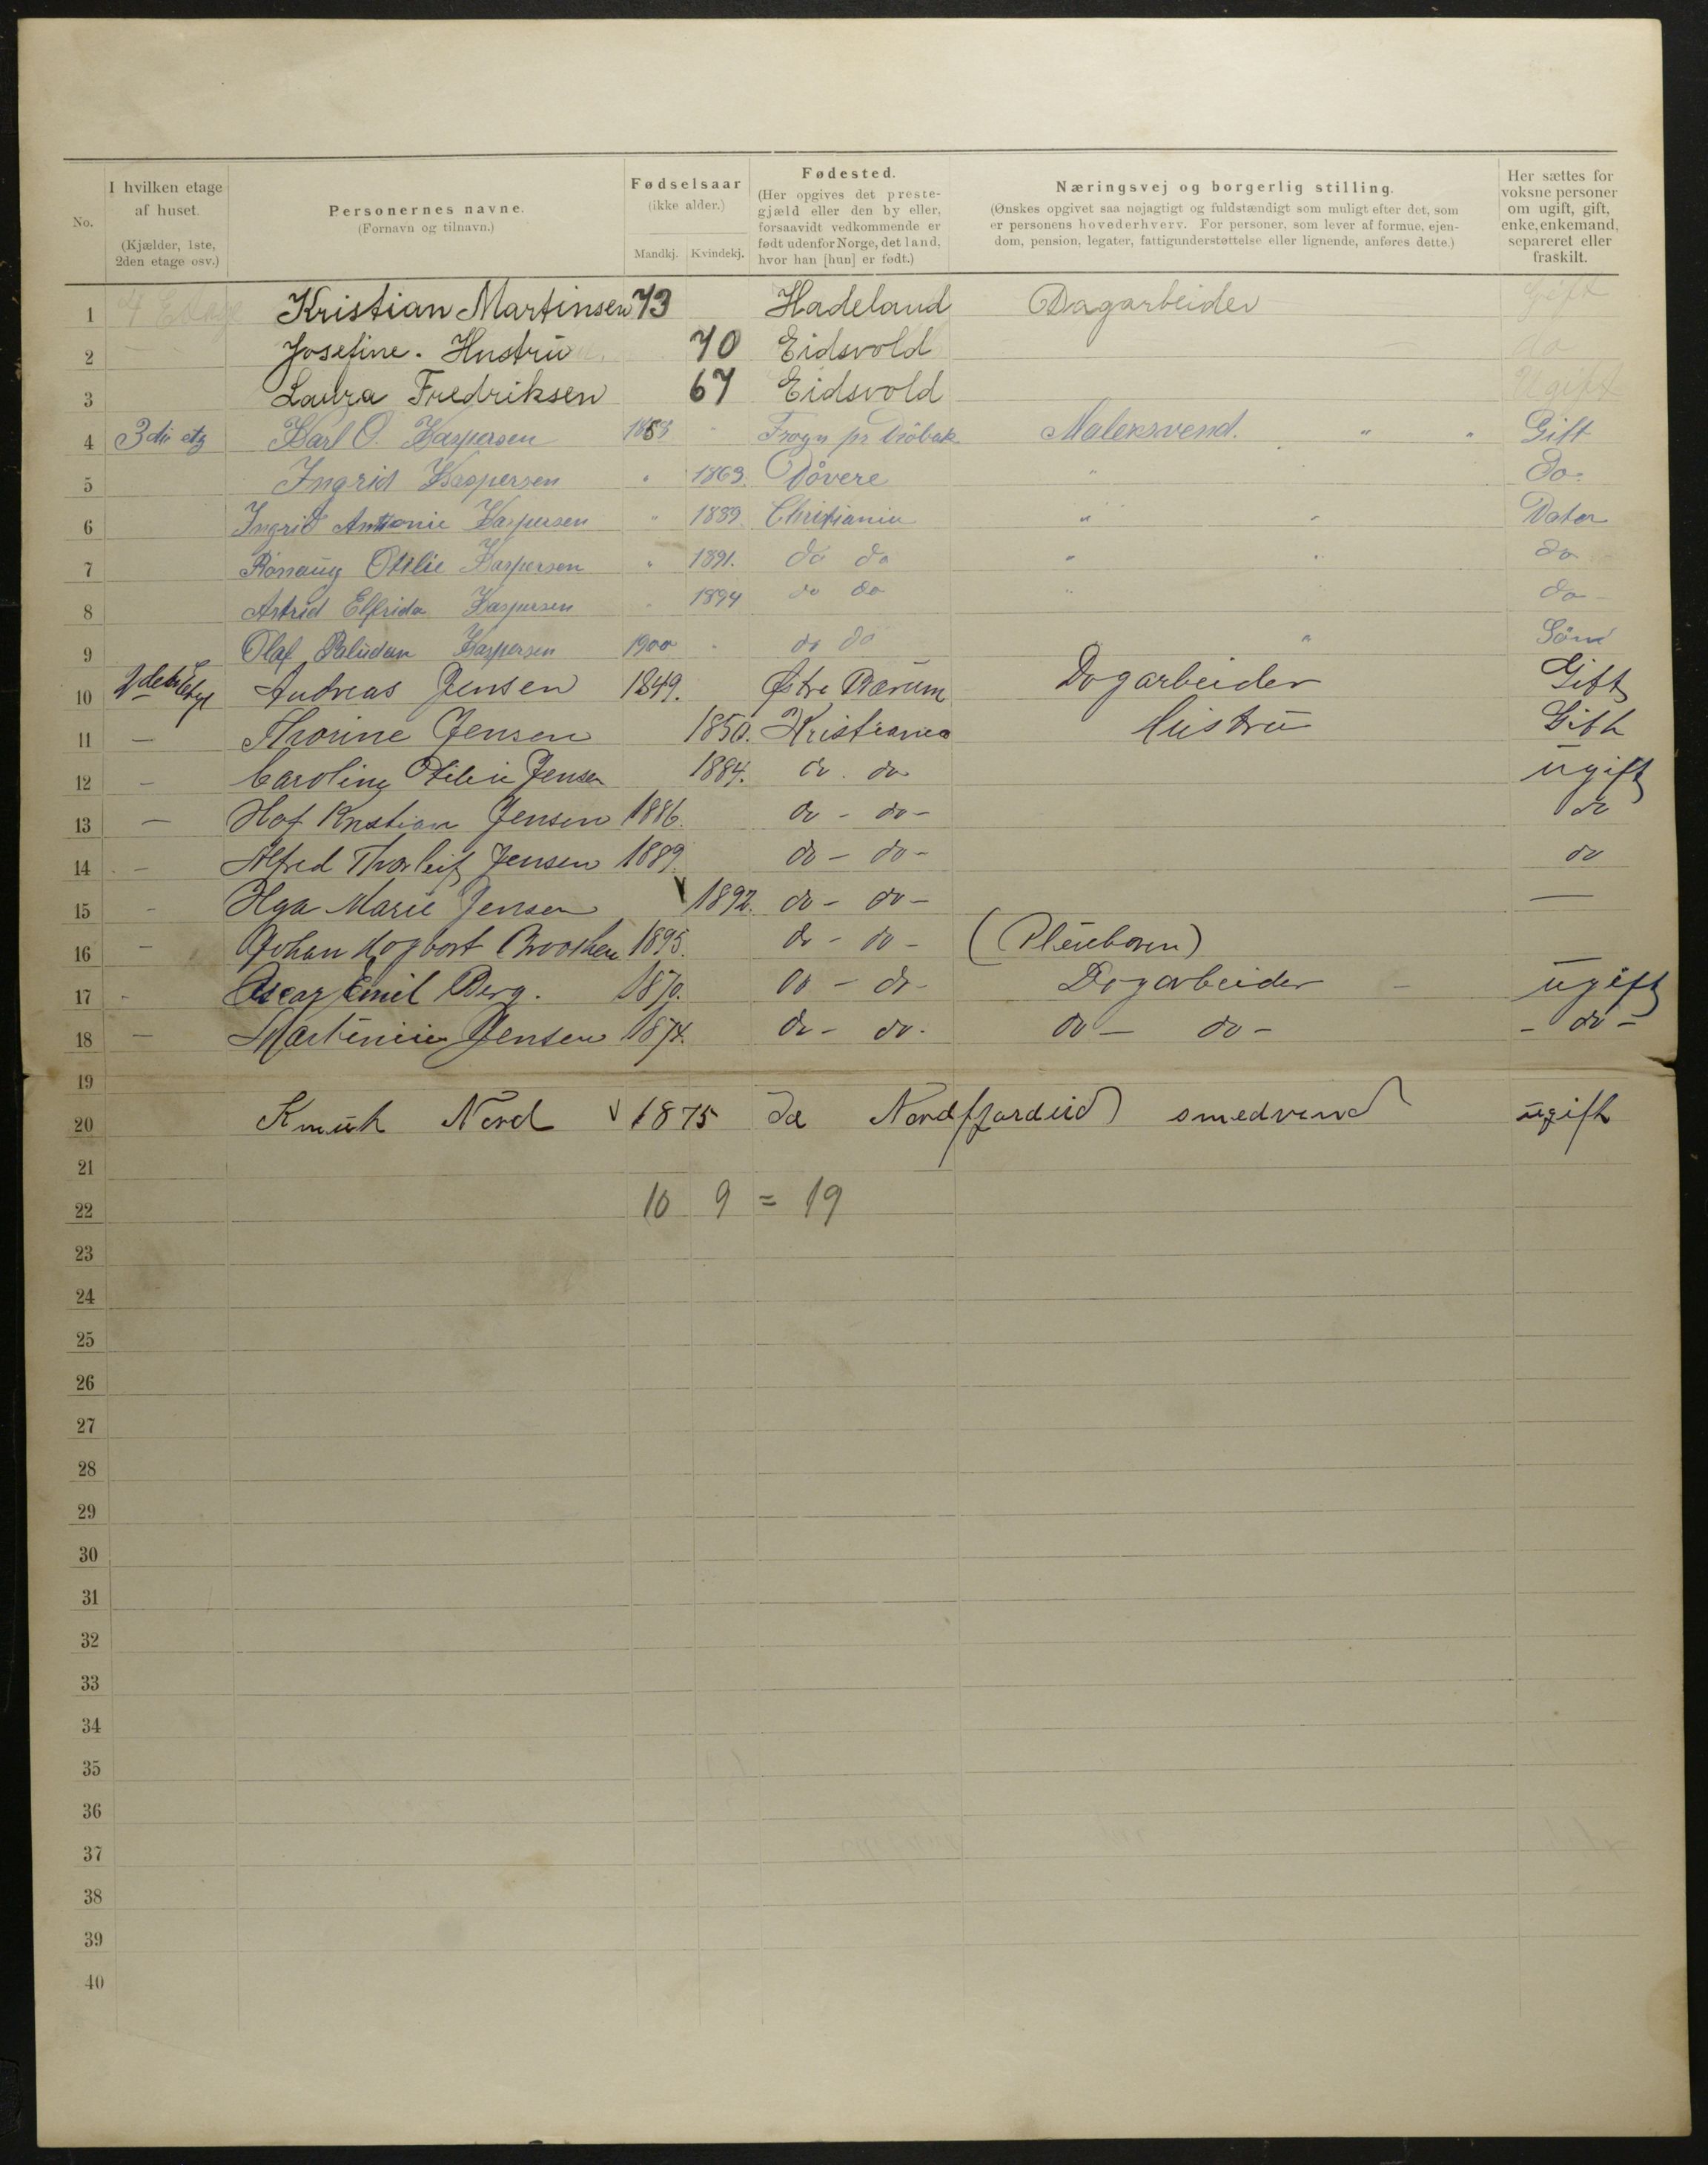 No.
I hvilken etage af huset. (Kjælder, 1ste, 2den etage osv.)
Personernes navne. (Fornavn og tilnavn.)
Fødselsaar (ikke alder.) Mandkj. Kvindekj.
Fødested. (Her opgives det prestegjæld eller den by eller, forsaavidt vedkommende er født udenfor Norge, det land, hvor han [hun] er født.)
Næringsvej og borgerlig stilling. (Ønskes opgivet saa nøjagtigt og fuldstændigt som muligt efter det, som er personens hovederhverv. For personer, som lever af formue, ejendom, pension, legater, fattigunderstøttelse eller lignende, anføres dette.)
Her sættes for voksne personer om ugift, gift, enke, enkemand, separeret eller fraskilt.
1 4 Etage Kristian Martinsen 73 Hadeland Dagarbeider Gift
2 Josefine. Hustru 70 Eidsvold do
3 Laura Fredriksen 67 Eidsvold Ugift
4 3die etg Karl O. Kaspersen Frogn pr Dröbak Malersvend. " " Gift
5 Ingrid Kaspersen " 1863. Dåvre " Do.
6 Ingrid Anttonie Kaspersen " 1889 Christiania " " Dater
7 Rönnaug Otilie Kaspersen " 1891. do do " " do
8 Astrid Elfrida Kaspersen " 1894 do do " do
9 Olaf Paludan Kaspersen 1900 " do do " Sönn
10 2den Etage Andreas Jensen 1849. Østre Bærum Dagarbeider Gift
11 — Thorine Jensen 1850. Kristiania Hustru Gift
12 — Caroline Otilie Jensen 1884. do. do ugift
13 — Kristian Jensen 1886. do - do - do
14 — Alfred Thorleif Jensen 1889. do - do - do
15 - Marie Jensen √ 1892. do - do - —
16 - Johan 1895. do - do - (Pleiebarn)
17 - Oscar Emil Berg. 1870. do - do - Dagarbeider - ugift
18 — Jensen 1874. do - do. do — do - - do -
19
20 Knuth Nord √ 1875 Nordfjordeid smedsvend ugift
21
22 10 9 = 19
23
24
25
26
27
28
29
30
31
32
33
34
35
36
37
38
39
40